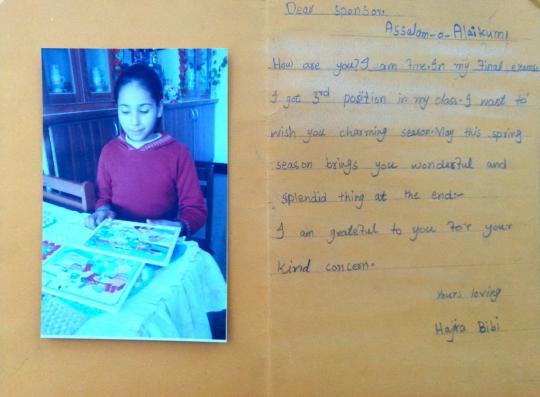 Dear sponsor
Assalam-o-Alaikum!
How are you? I am fine. In my final exams
I got 3rd position in my class. I want to
wish you charming season. May this spring
season brings you wonderful and
splendid thing at the end:-
I am grateful to you for your
kind concern.
Yours loving
Hajra Bibi